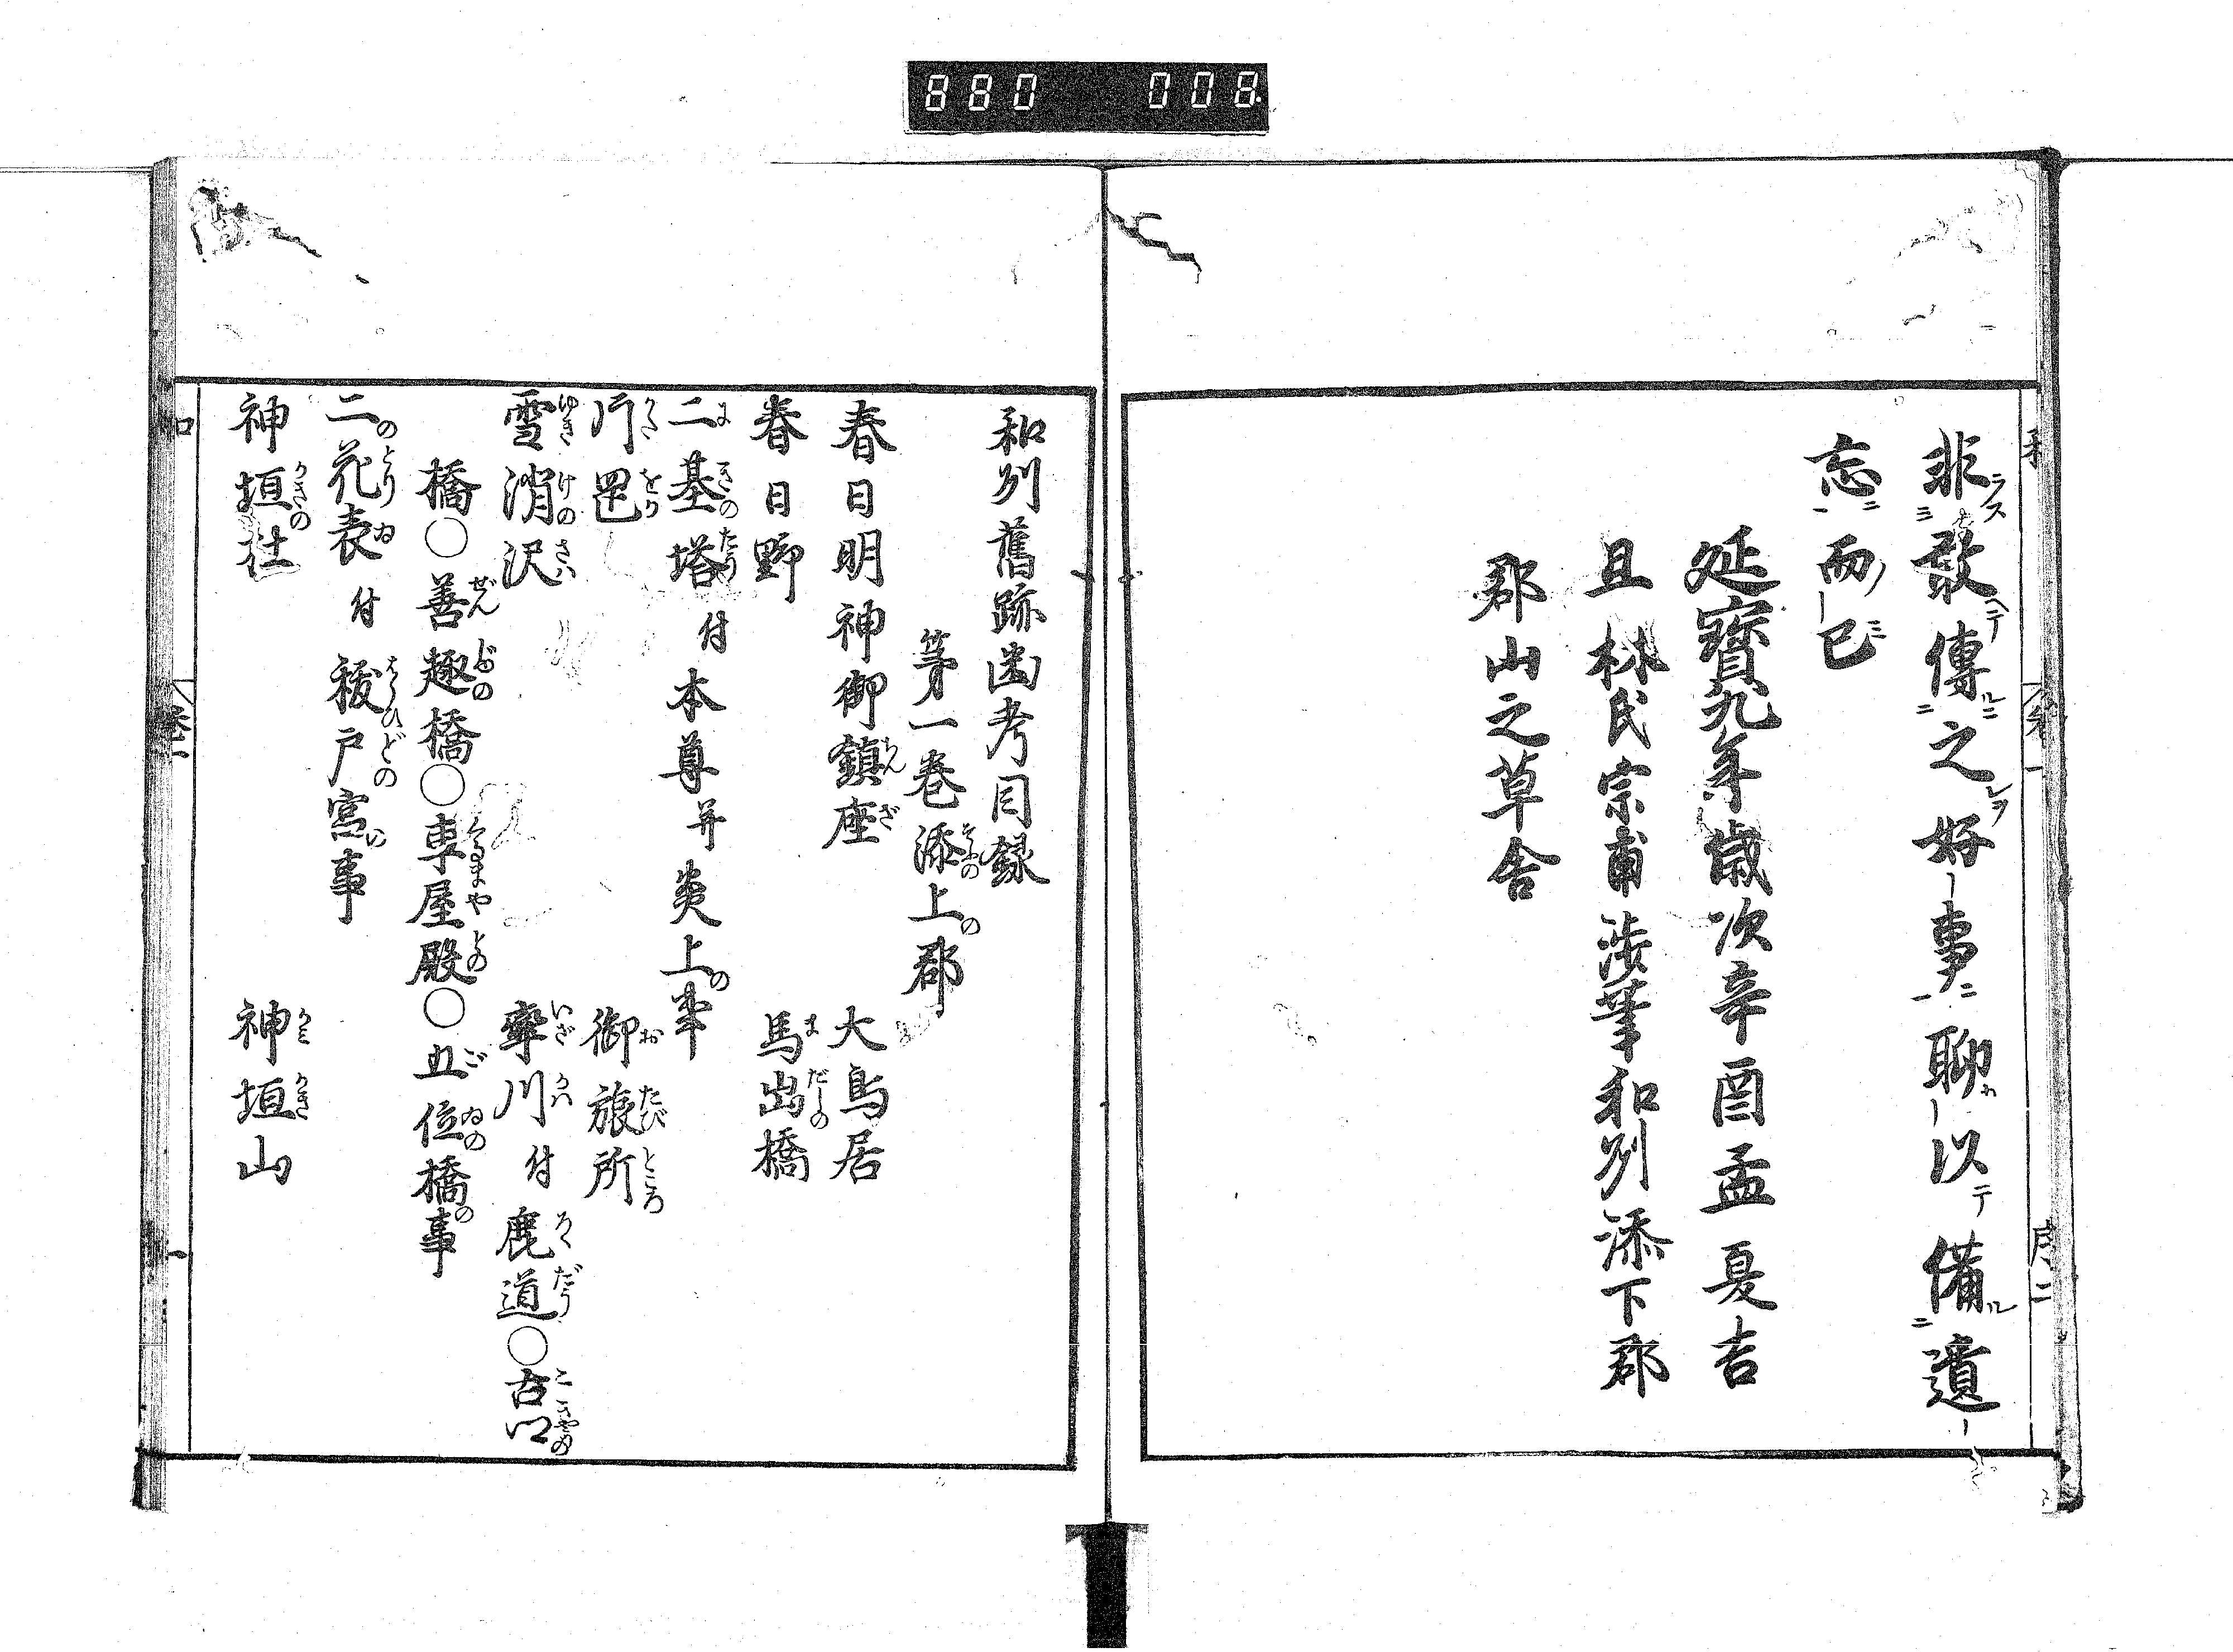 880 008.
非敢傳之好事聊以備遺
忘而已
延寳九年歳次辛酉孟夏吉
旦林氏宗甫渉筆和刕添下郡
郡山之草舎
和刕舊跡幽考目録
第一巻添上郡
春日明神御鎮座 大鳥居
春日野 馬出橋
二基塔付本尊并炎上事
片罡 御旅所
雪消沢 率川付鹿道〇古㕝
橋〇善趣橋〇車屋殿〇五位橋事
二花表付秡戸宮事
神垣社 神垣山